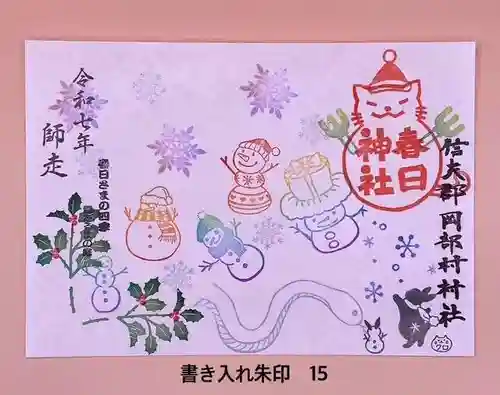 令和七年
師走
春日さまの四季
春日神社
信夫郡岡部村村社
クロ
書き入れ朱印 15